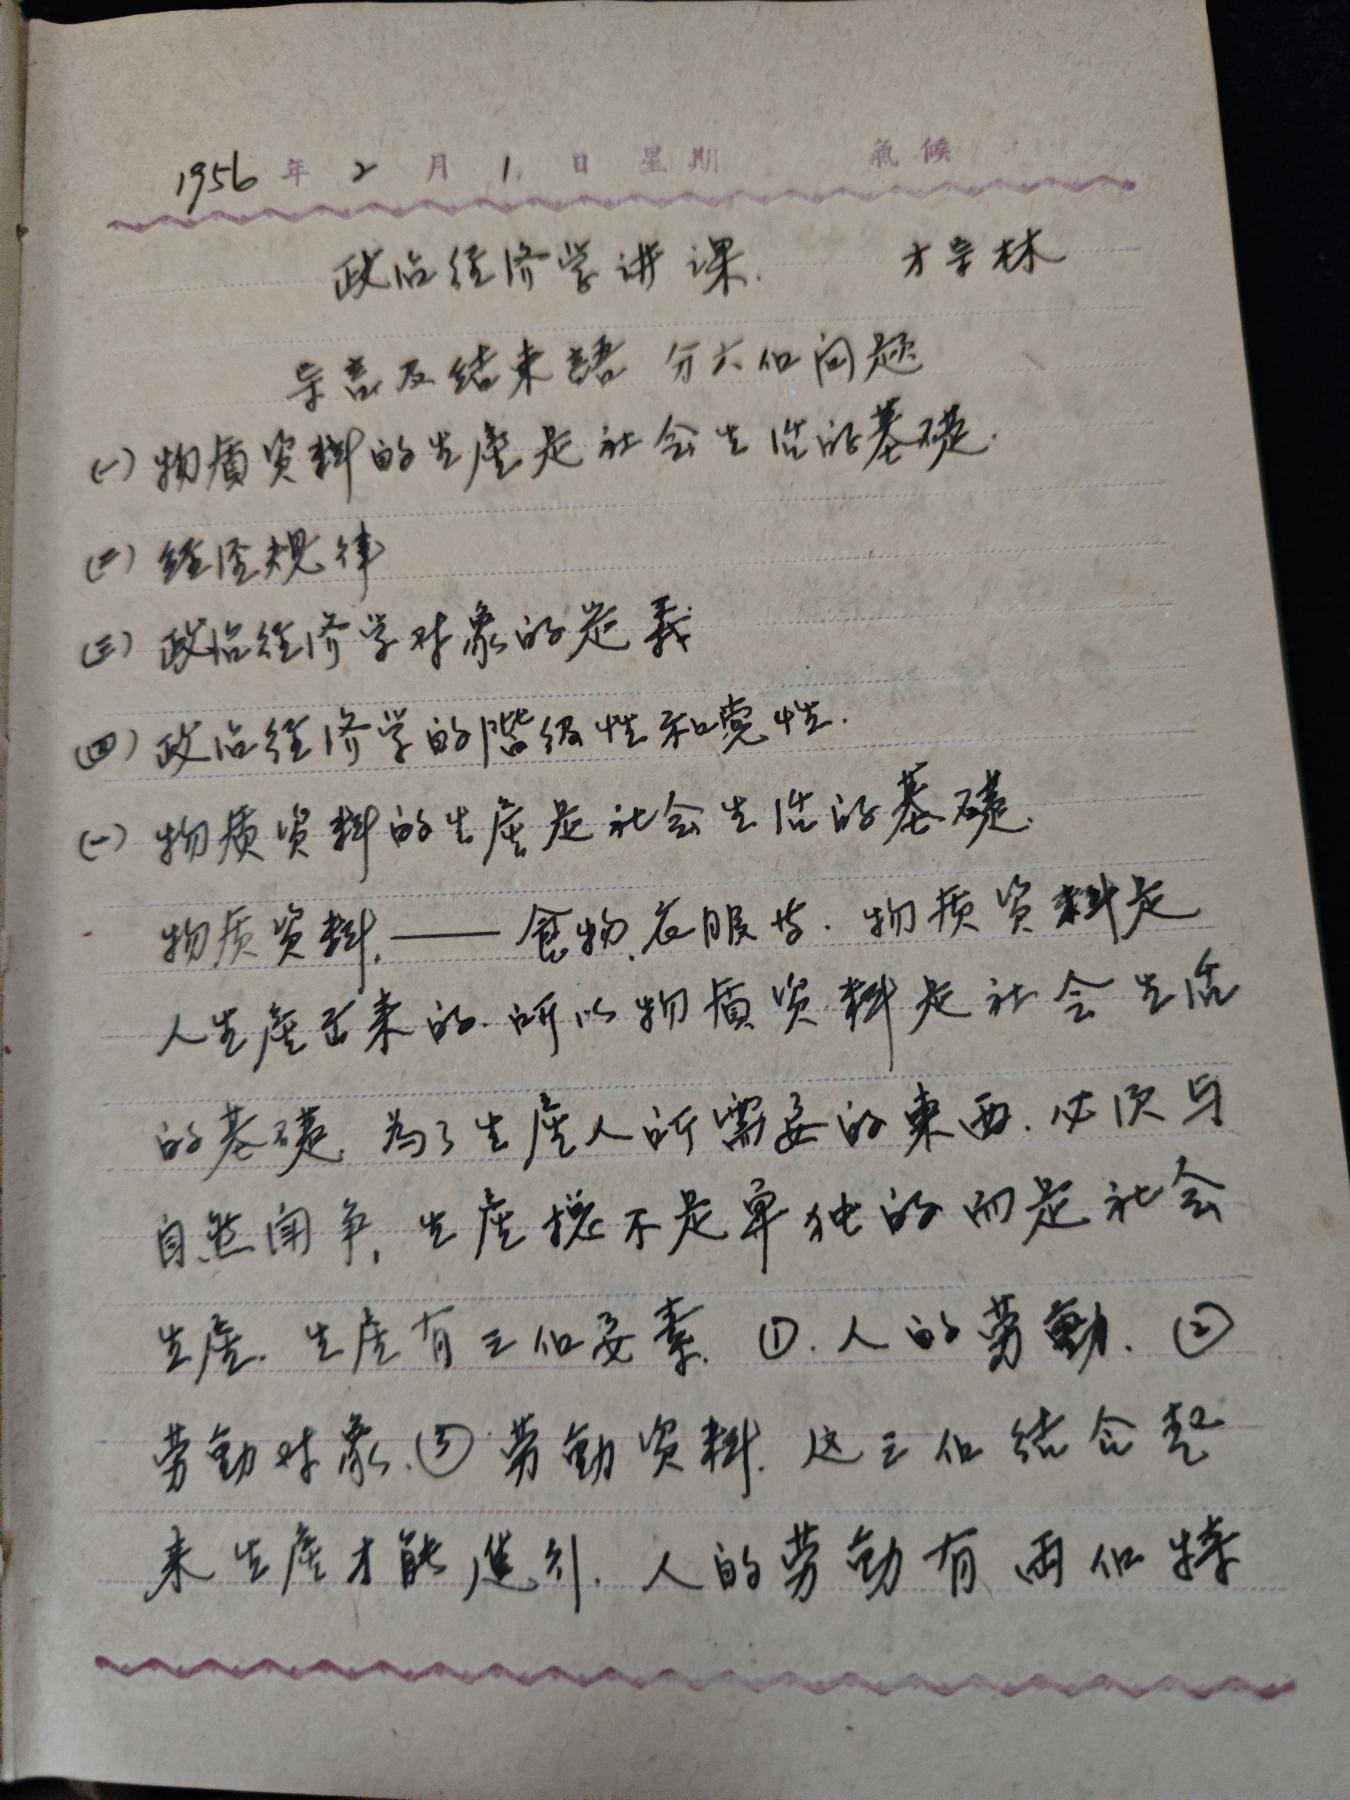 1956 年 2 月 1 日 星期 氣候
政治经济学讲课. 方学林
导言及结束語 分六個问题
(一) 物質资料的生產是社会生活的基礎.
(二) 经济规律
(三) 政治经济学对象的定義
(四) 政治经济学的階级性和党性.
(一) 物质资料的生產是社会生活的基礎.
物质资料.——食物.衣服等.物质资料是
人生產出来的.所以物質资料是社会生活
的基礎.為了生產人所需要的東西.必须与
自然闹争,生產總不是单独的而是社会
生產.生產有三個要素.①.人的劳動.②
劳動对象.③劳動资料.这三個结合起
来生產才能進行.人的劳動有両個特